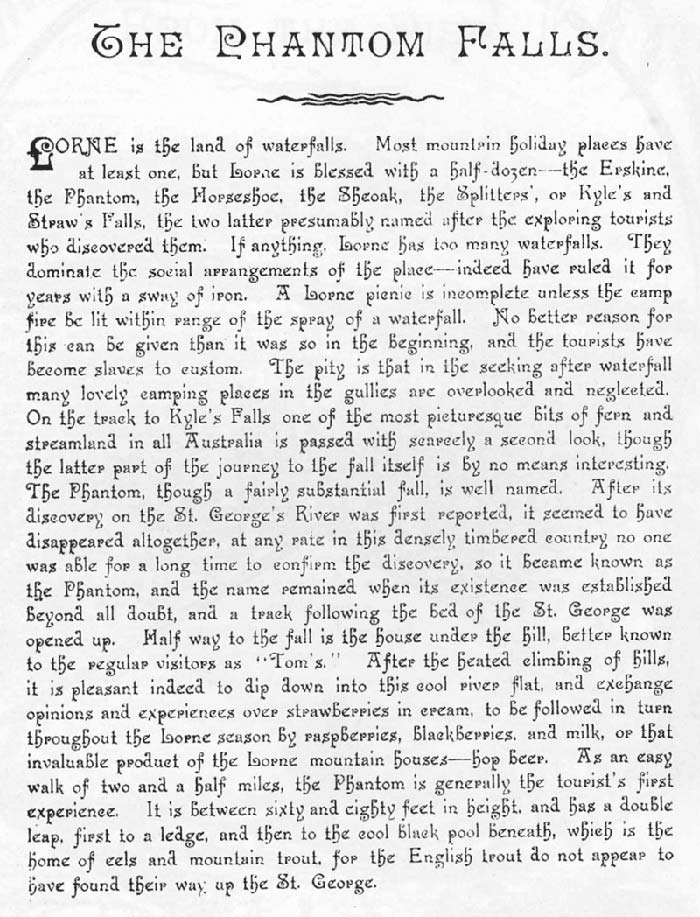 THE PHANTOM FALLS.
LORNE is the land of waterfalls. Most mountain holiday places have
at least one, but Lorne is blessed with a half-dozen—the Erskine,
the Phantom, the Horseshoe, the Sheoak, the Splitters', or Kyle's and
Straw's Falls, the two latter presumably named after the exploring tourists
who discovered them. If anything, Lorne has too many waterfalls. They
dominate the social arrangements of the place—indeed have ruled it for
years with a sway of iron. A Lorne picnic is incomplete unless the camp
fire be lit within range of the spray of a waterfall. No better reason for
this can be given than it was so in the beginning, and the tourists have
become slaves to custom. The pity is that in the seeking after waterfall
many lovely camping places in the gullies are overlooked and neglected.
On the track to Kyle's Falls one of the most picturesque bits of fern and
streamland in all Australia is passed with scarcely a second look, though
the latter part of the journey to the fall itself is by no means interesting.
The Phantom, though a fairly substantial fall, is well named. After its
discovery on the St. George's River was first reported, it seemed to have
disappeared altogether, at any rate in this densely timbered country no one
was able for a long time to confirm the discovery, so it became known as
the Phantom, and the name remained when its existence was established
beyond all doubt, and a track following the bed of the St. George was
opened up. Half way to the fall is the house under the hill, better known
to the regular visitors as "Tom's." After the heated climbing of hills,
it is pleasant indeed to dip down into this cool river flat, and exchange
opinions and experiences over strawberries in cream, to be followed in turn
throughout the Lorne season by raspberries, blackberries, and milk, or that
invaluable product of the Lorne mountain houses—hop beer. As an easy
walk of two and a half miles, the Phantom is generally the tourist's first
experience. It is between sixty and eighty feet in height, and has a double
leap, first to a ledge, and then to the cool black pool beneath, which is the
home of eels and mountain trout, for the English trout do not appear to
have found their way up the St. George.